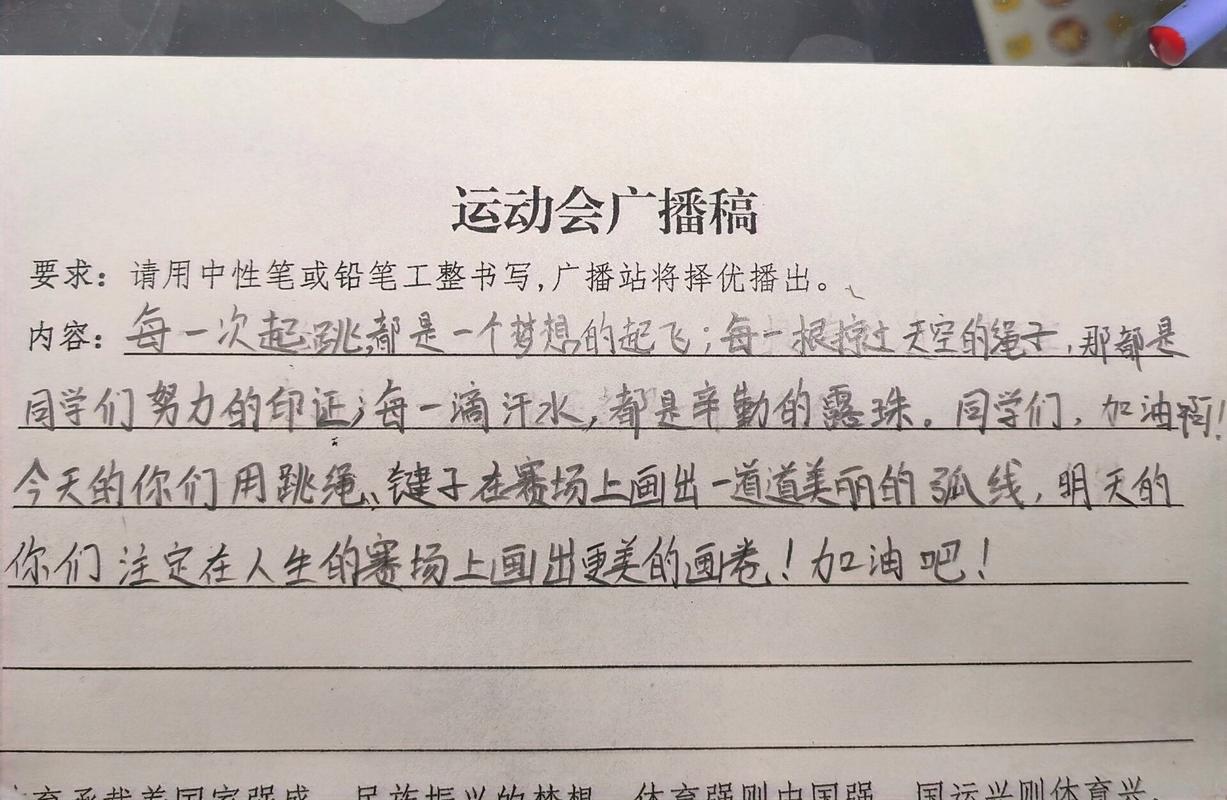 运动会广播稿
要求：请用中性笔或铅笔工整书写，广播站将择优播出。
内容：每一次起跳,都是一个梦想的起飞；每一根掠过天空的绳子，那都是
同学们努力的印证；每一滴汗水，都是辛勤的露珠。同学们，加油啊！
今天的你们用跳绳、键子在赛场上画出一道道美丽的弧线，明天的
你们注定在人生的赛场上画出更美的画卷！加油吧！
育承载着国家强盛、民族振兴的梦想，体育强则中国强，国运兴则体育兴。